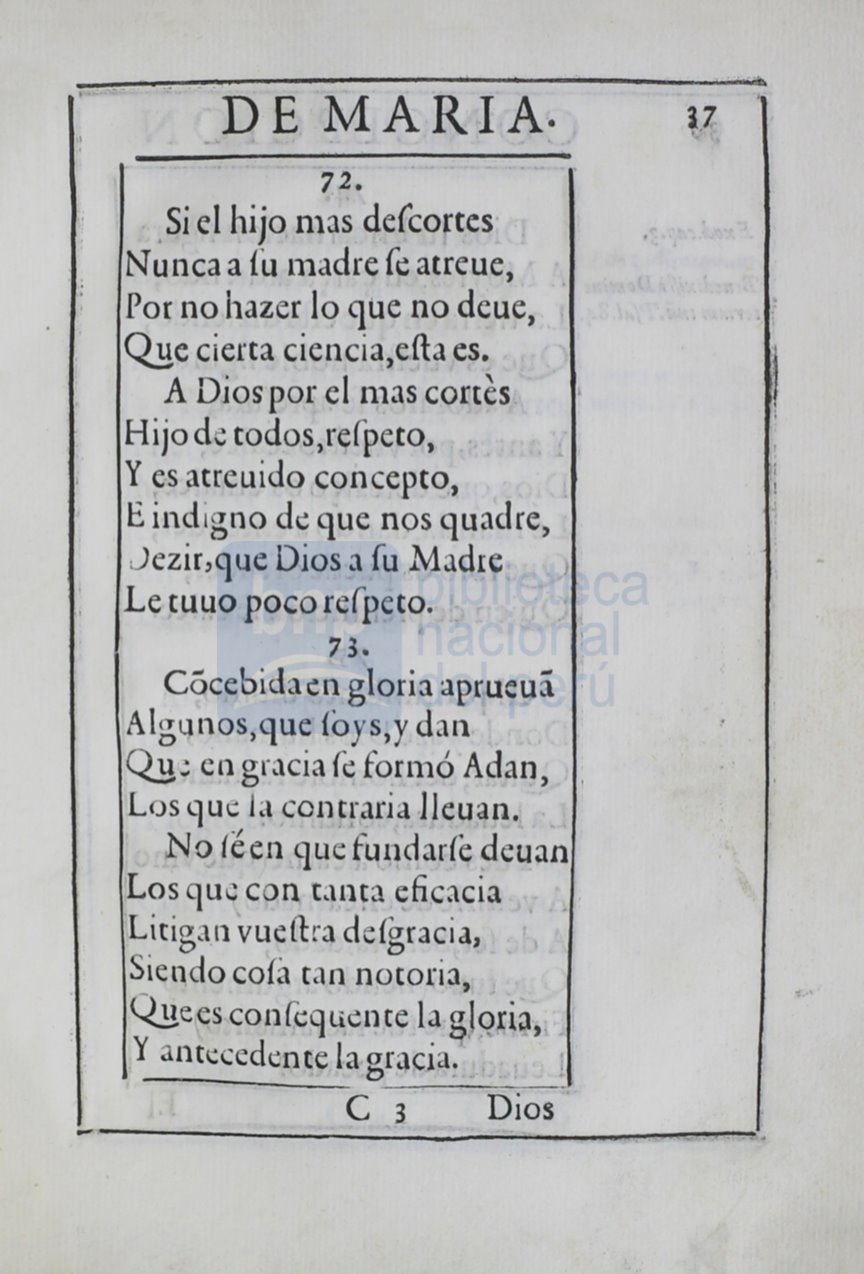 DE MARIA. 37
72.
Si el hijo mas deſcortes
Nunca a ſu madre ſe atreue,
Por no hazer lo que no deue,
Que cierta ciencia, eſta es.
A Dios por el mas cortès
Hijo de todos, reſpeto,
Y es atreuido concepto,
E indigno de que nos quadre,
Dezir, que Dios a ſu Madre
Le tuuo poco reſpeto.
biblioteca
nacional
del perú
73.
Cõcebida en gloria aprueuã
Algunos, que ſoys, y dan
Que en gracia ſe formó Adan,
Los que la contraria lleuan.
No ſé en que fundarſe deuan
Los que con tanta eficacia
Litigan vueſtra deſgracia,
Siendo coſa tan notoria,
Que es conſequente la gloria,
Y antecedente la gracia.
C 3 Dios